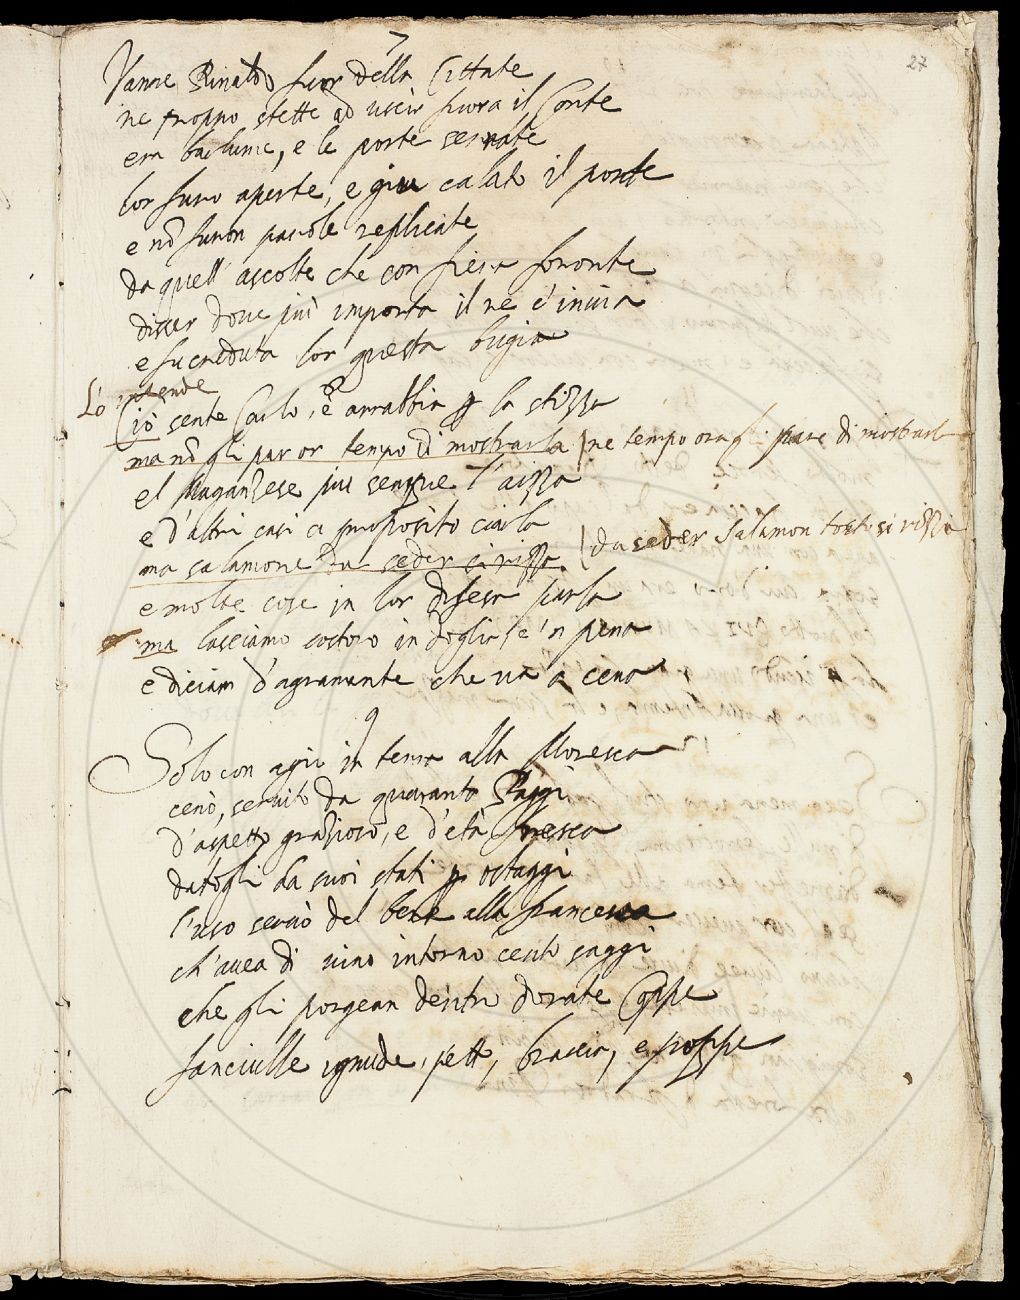 27
7
Vanne Rinaldo fuor della Cittate
ne troppo stette ad uscir fuora il Conte
era barlume, e le porte serrate
lor furo aperte, e giu calato il ponte
e nō furon parole replicate
da quell' ascolte che con fiera fronte
disser doue piu importa il re c'inuia
e fu creduta lor questa bugia
8
Lo intende
Ciò sente Carlo, e arrabbia ꝑ la stizza
ma nō gli par or tempo di mostrarla / ne tempo ora gli pare di mostrarl
el Maganzese piu sempre l'aizza
e d'altri casi a proposito ciarla
ma salamone da seder si rizza / da seder Salamon tosto si rizza
e molte cose in lor difesa parla
ma lasciamo costoro in doglia, e 'n pena
e diciam d'agramante che ua a cena
9
Solo con agio in terra alla Moresca
cenò, seruito da quaranta Paggi
d'aspetto grazioso, e d'età fresca
datogli da suoi stati ꝑ ostaggi
l'uso seruò del bere alla francesca
ch'auea di uino intorno cento saggi
che gli porgean dentro dorate Coppe
fanciulle ignude, pett, braccia, e poppe